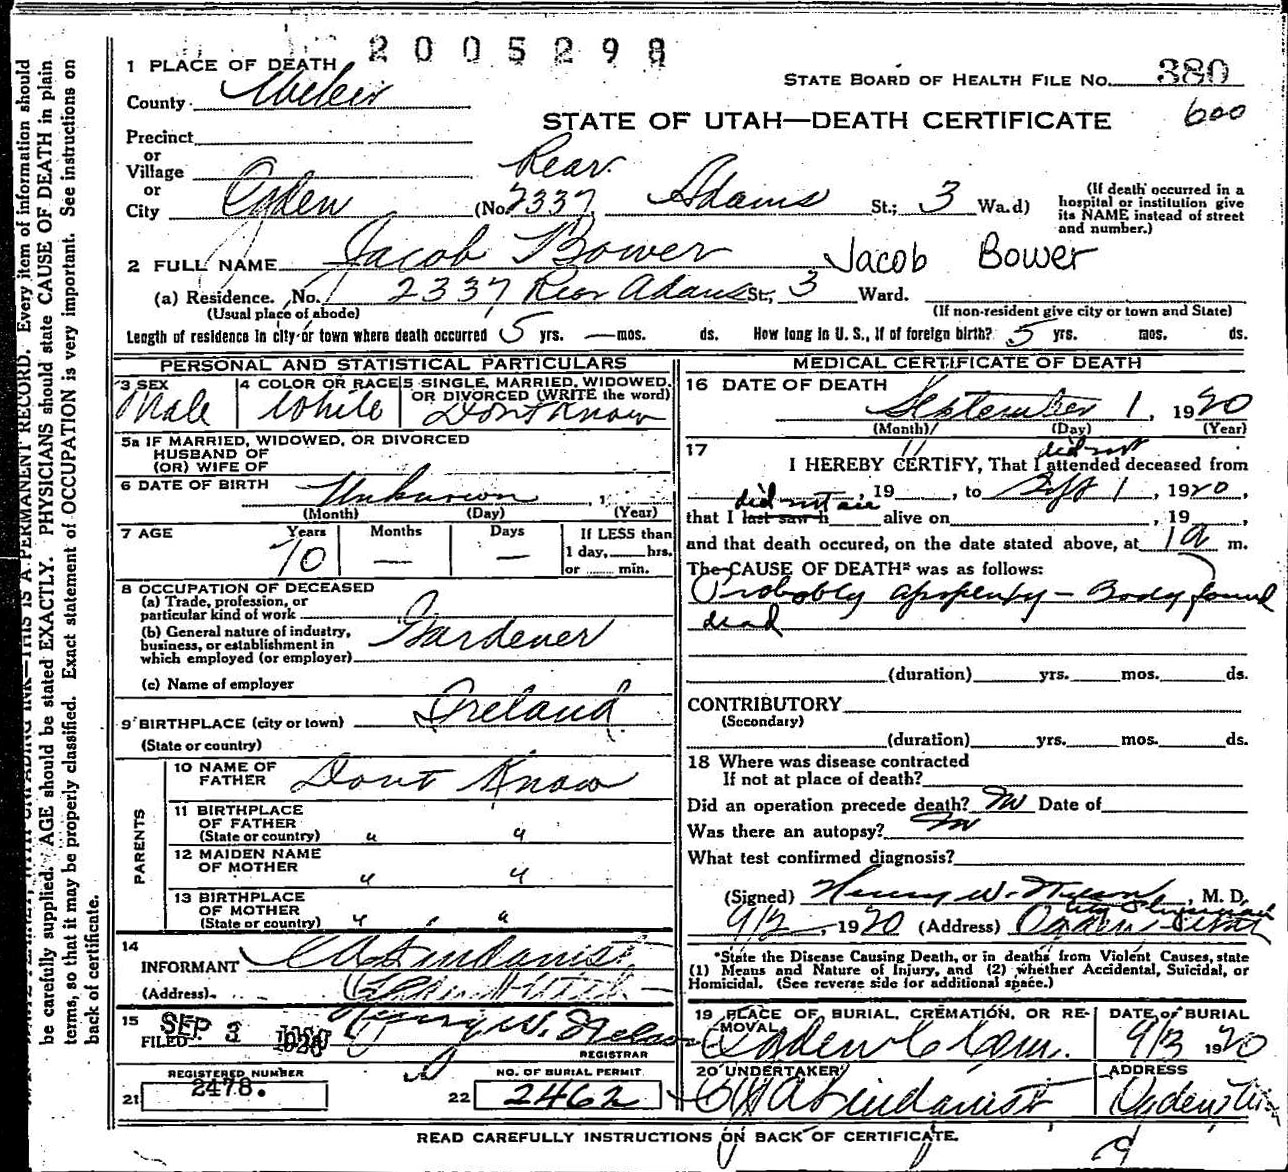 2005298
1 PLACE OF DEATH
STATE BOARD OF HEALTH FILE NO. 380
County Weber
600
STATE OF UTAH—DEATH CERTIFICATE
Precinct
or
Village
Rear
or
City Ogden (No. 2337 Adams St.; 3 Wa.d)
(If death occurred in a
hospital or institution give
its NAME instead of street
and number.)
2 FULL NAME Jacob Bower Jacob Bower
(a) Residence. No. 2337 Rear Adams St, 3 Ward.
(Usual place of abode) (If non-resident give city or town and State)
Length of residence in city or town where death occurred 5 yrs. — mos. ds. How long in U. S., if of foreign birth? 5 yrs. mos. ds.
PERSONAL AND STATISTICAL PARTICULARS
3 SEX Male
4 COLOR OR RACE White
5 SINGLE, MARRIED, WIDOWED,
OR DIVORCED (WRITE the word)
Dont Know
5a IF MARRIED, WIDOWED, OR DIVORCED
HUSBAND OF
(OR) WIFE OF
6 DATE OF BIRTH Unknown , 1
(Month) (Day) (Year)
7 AGE Years Months Days If LESS than
70 — — 1 day, hrs.
or min.
8 OCCUPATION OF DECEASED
(a) Trade, profession, or
particular kind of work
Gardener
(b) General nature of industry,
business, or establishment in
which employed (or employer)
(c) Name of employer
9 BIRTHPLACE (city or town) Ireland
(State or country)
PARENTS
10 NAME OF
FATHER Dont Know
11 BIRTHPLACE
OF FATHER
(State or country) " "
12 MAIDEN NAME
OF MOTHER " "
13 BIRTHPLACE
OF MOTHER
(State or country) " "
14
INFORMANT
(Address) Ogden Utah
15
FILED SEP 3 1920 Henry W. Nelson
REGISTRAR
21 REGISTERED NUMBER
2478.
22 NO. OF BURIAL PERMIT
2462
MEDICAL CERTIFICATE OF DEATH
16 DATE OF DEATH
September 1, 1920
(Month) (Day) (Year)
17 did not
I HEREBY CERTIFY, That I attended deceased from
, 19 , to Sept 1, 1920,
did not see
that I last saw h alive on , 19 ,
and that death occured, on the date stated above, at 1 a m.
The CAUSE OF DEATH* was as follows:
Probably apoplexy – Body found
dead
(duration) yrs. mos. ds.
CONTRIBUTORY
(Secondary)
(duration) yrs. mos. ds.
18 Where was disease contracted
If not at place of death?
Did an operation precede death? No Date of
Was there an autopsy? No
What test confirmed diagnosis?
(Signed) Henry W. Nelson, M. D.
City Physician
9/2, 1920 (Address) Ogden Utah
*State the Disease Causing Death, or in deaths from Violent Causes, state
(1) Means and Nature of Injury, and (2) whether Accidental, Suicidal, or
Homicidal. (See reverse side for additional space.)
19 PLACE OF BURIAL, CREMATION, OR RE-
MOVAL
Ogden C Cem.
DATE of BURIAL
9/3 1920
20 UNDERTAKER
C A Lindquist
ADDRESS
Ogden
READ CAREFULLY INSTRUCTIONS ON BACK OF CERTIFICATE.
THIS IS A PERMANENT RECORD. Every item of information should
be carefully supplied. AGE should be stated EXACTLY. PHYSICIANS should state CAUSE OF DEATH in plain
terms, so that it may be properly classified. Exact statement of OCCUPATION is very important. See instructions on
back of certificate.